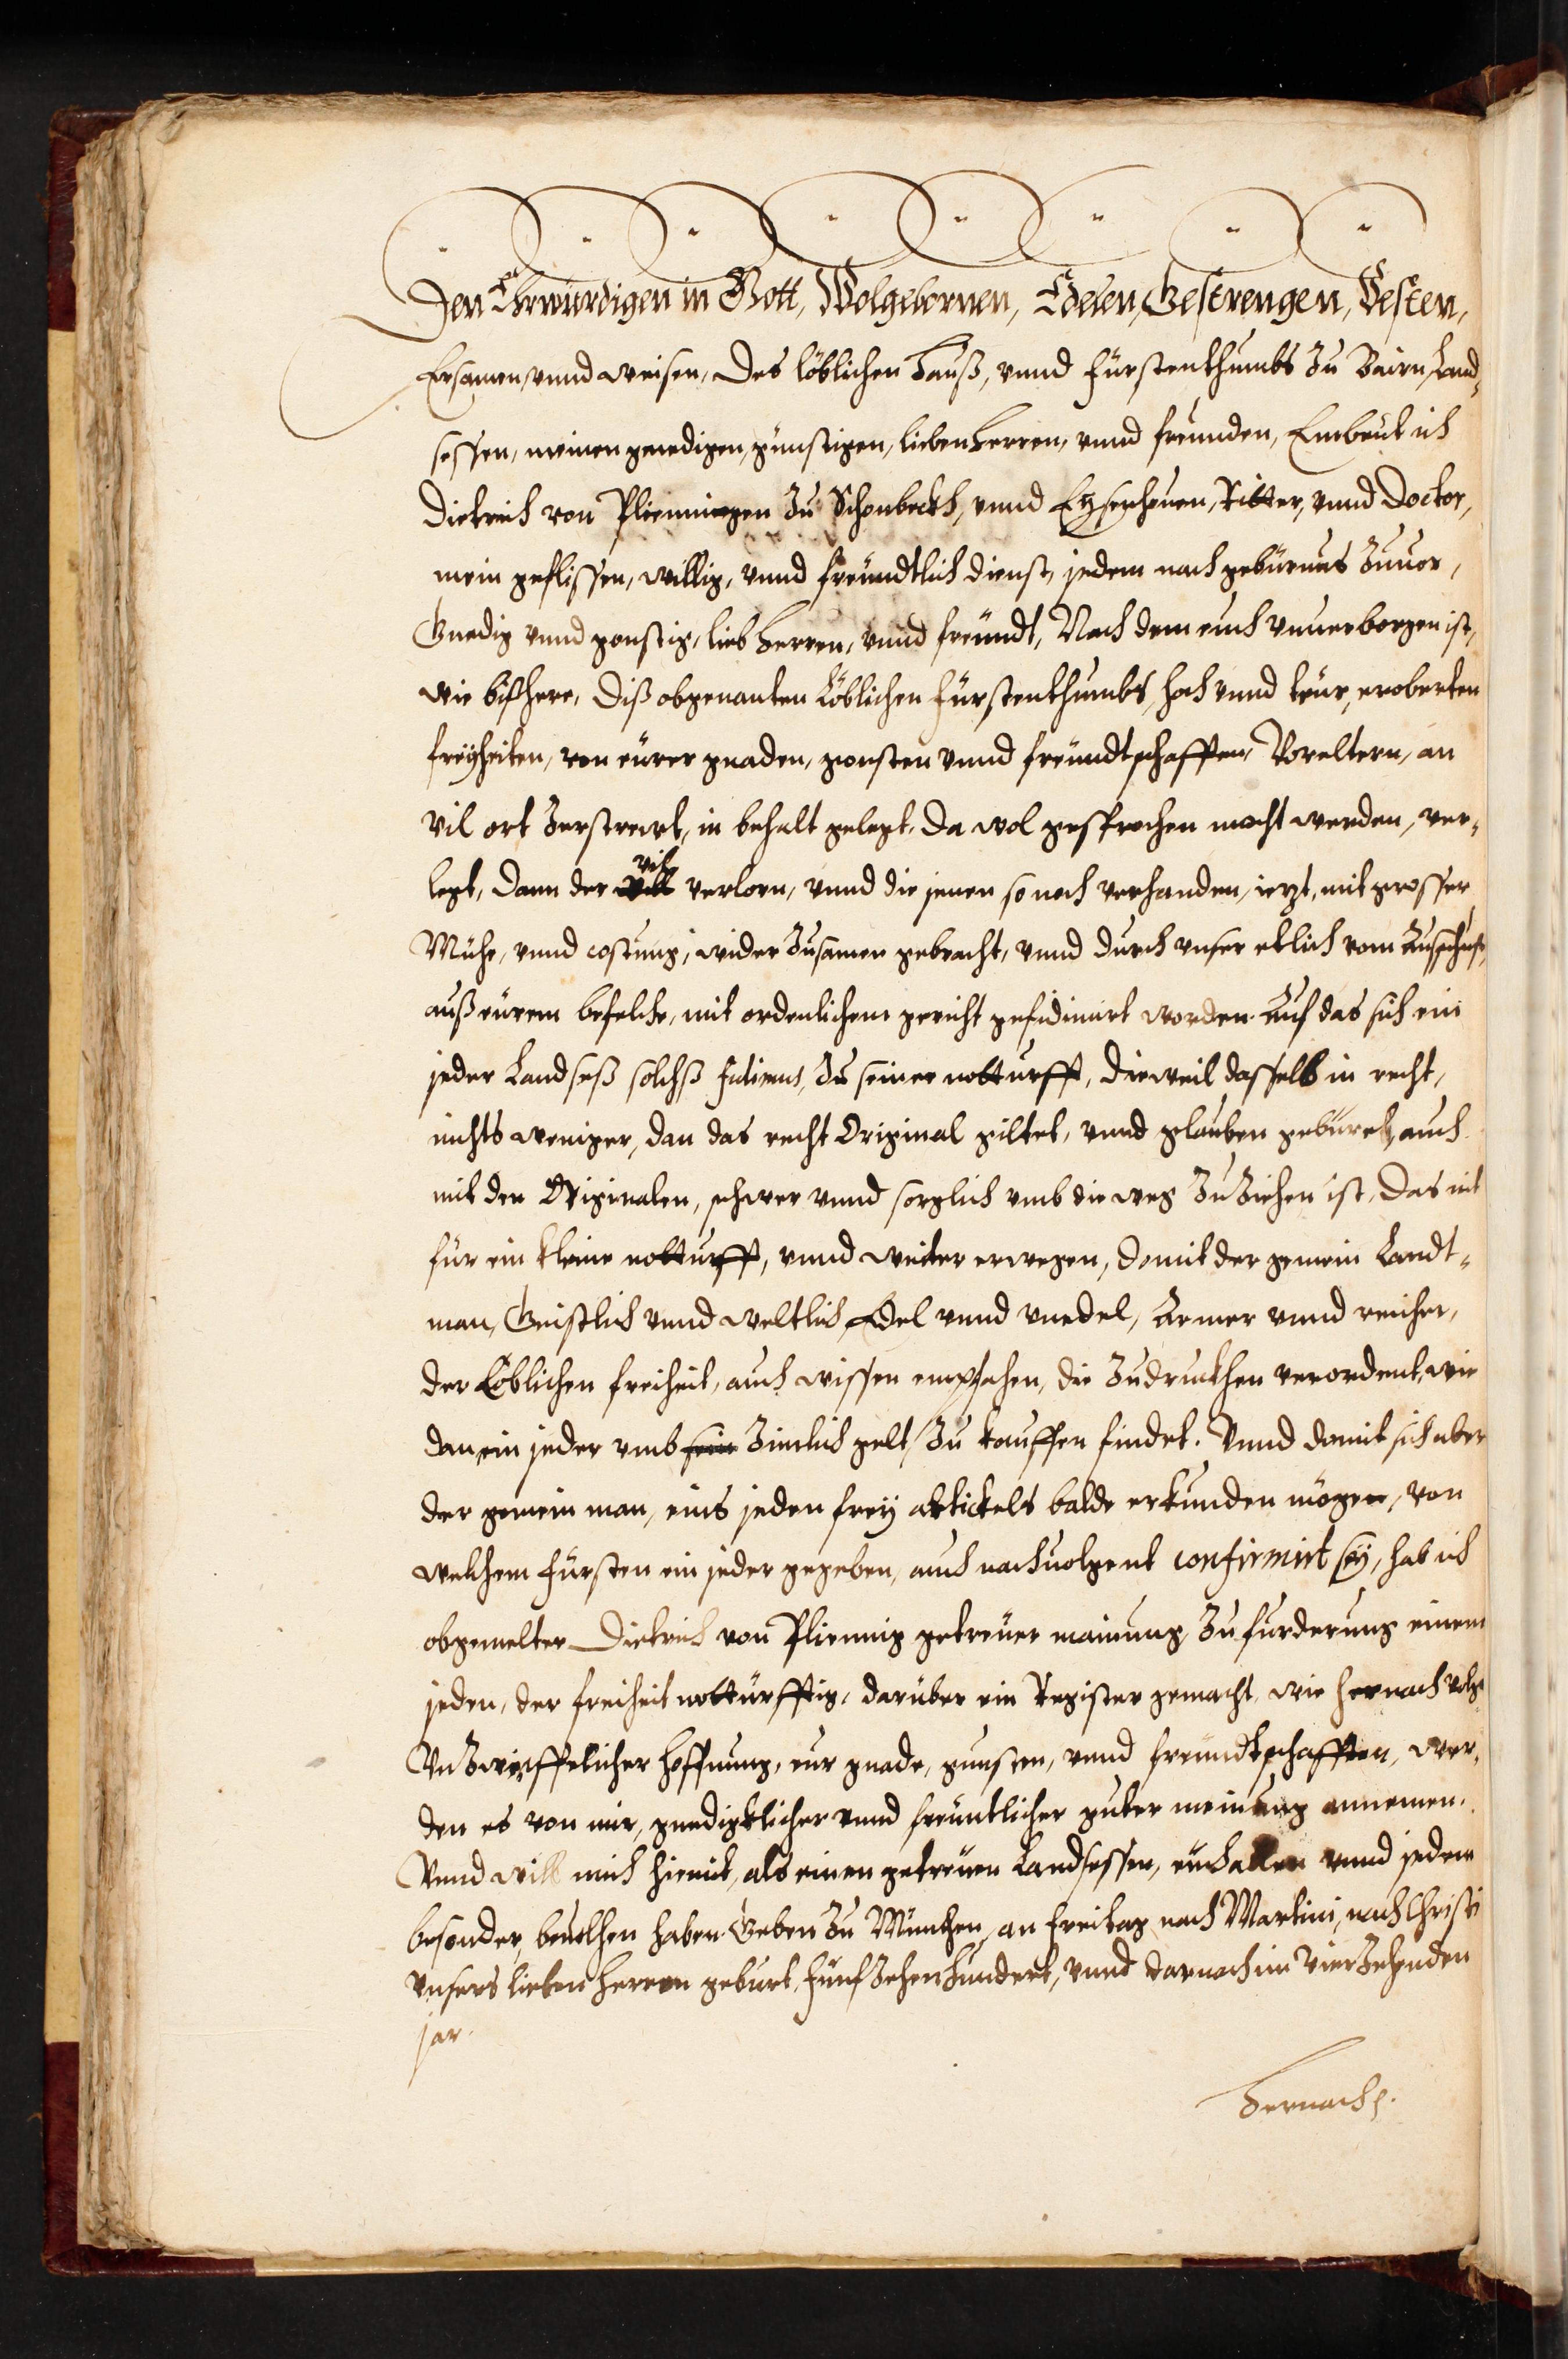 Den Ehrwürdigen in Gott, Wolgebornen, Edelen, Gestrengen, Vesten,
Ersamen, vnnd weisen, Des löblichen Hauß, vnnd Fürstenthumbs Zu Bairn, Land,
sessen, meinen genedigen, günstigen, lieben Herren, vnnd freunden, Embeut ich
Dietrich von Plienningen Zu Schonbeckh, vnnd Eysenhouen, Ritter, vnnd Doctor,
mein geflissen, willig, vnnd freundtlich dienst, jedem nach gebürnus Zuuor,
Gnedig vnnd gonstig, lieb Herren, vnnd freundt, Nach dem euch vnuerborgen ist,
wie bißhere, Diß obgenanten Löblichen Fürstenthumbs, hoch vnnd teur, eroberten
freyheiten, von eurer gnaden, gonsten vnnd freundtschafften, Voreltern, an
vil ort Zerstrewt, in behalt gelegt, Da wol gesprochen mocht werden, ver,
legt, Dann der vill vil verlorn, vnnd die jenen so noch verhanden, ietzt, mit grosser
Mühe, vnnd costung, wider Zusamen gebracht, vnnd durch vnser etlich vom Ausschuß,
auß eurem befelche, mit ordenlichem gericht gefidimirt worden. Auf das sich ein
jeder Landseß solchß fidimus, Zu seiner notturfft, Dieweil dasselb in recht,
nichts weniger, dan das recht Original giltet, vnnd glauben gebüret, auch
mit den Originalen, schwer vnnd sorglich vmb die weg Zu Ziehen ist, Das nit
für ein kleine notturfft, vnnd weiter erwegen, Domit der gemein Landt,
man, Geistlich vnnd weltlich, Edel vnnd vnedel, Armer vnnd reicher,
der Löblichen freiheit, auch wissen empfahen, die Zudruckhen verordent, wie
dan ein jeder vmb sein Zimlich gelt, Zu kauffen findet. Vnnd domit sich aber
der gemein man, eins jeden frey artickels balde erkunden mögen, von
welchem Fürsten ein jeder gegeben, auch nachuolgent confirmirt sey, hab ich
obgemelter Dietrich von Plienning getreuer mainung, Zu furderung einem
jeden, der freiheit notturfftig, darüber ein Register gemacht, wie hernach volgt
Vn Zweiffelicher hoffnung, eur gnade, gunsten, vnnd freundtschafften, wer,
den es von mir, gnedigklicher vnnd freuntlicher guter meinung annemen.
Vnnd will mich hiemit, als einen getreuen Landsessen, euch allen vnnd jedem
besonder, beuelhen haben. Geben Zu München, an Freitag nach Martini, nach Christi
vnsers lieben Herren geburt, Fünf Zehen hundert, vnnd darnach im vier Zehenden
jar.
Hernach